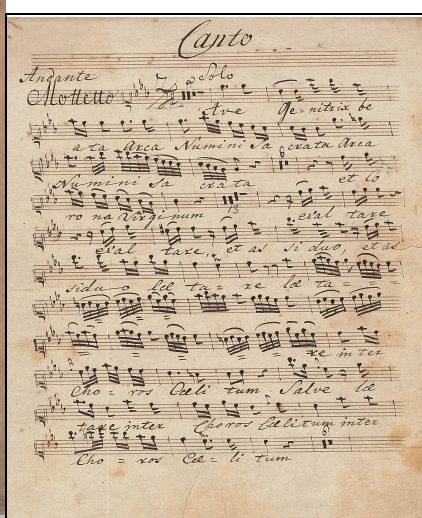 Canto
Andante Solo
Mottetto Ave Ge=nitrix be
a ta Arca Numini Sa crata Arca
Numini Sa crata et Co
ro na Virginum exal tare
exal tare, et as si duo, et as
siduo læ ta= re læ ta= = =
= = = = = =
= = = = = re inter
Cho= ros Cæli tum, Salve læ
tare inter Choros Cælitum inter
Cho = ros Cæ= li tum